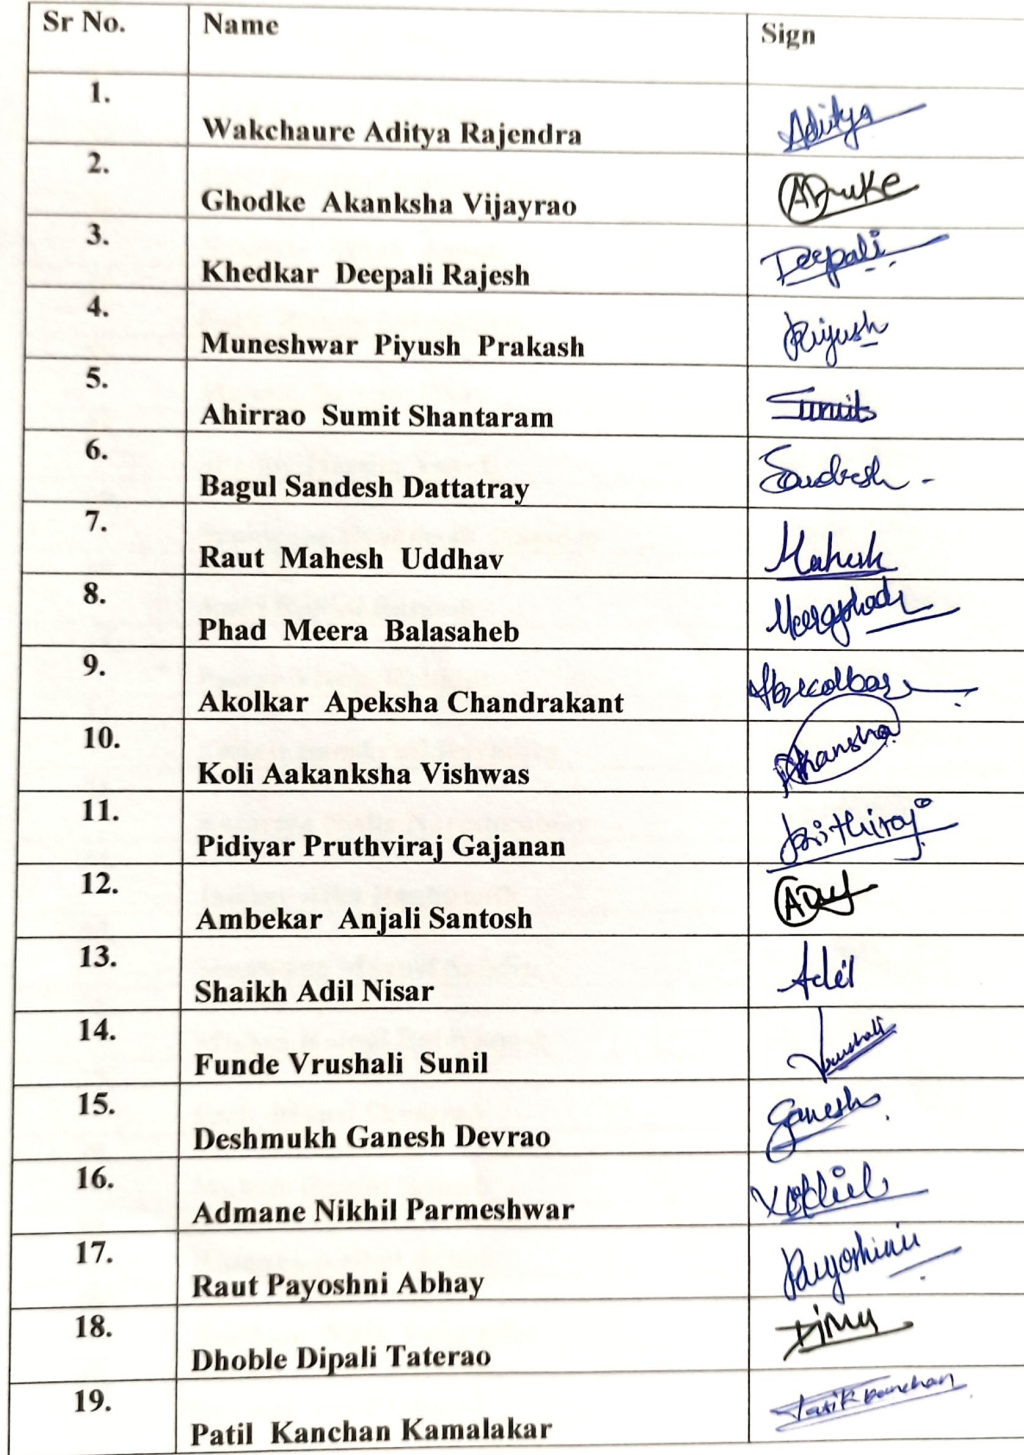 Sr No. Name Sign
1. Wakchaure Aditya Rajendra Aditya
2. Ghodke Akanksha Vijayrao
3. Khedkar Deepali Rajesh Deepali
4. Muneshwar Piyush Prakash Piyush
5. Ahirrao Sumit Shantaram Sumit
6. Bagul Sandesh Dattatray Sandesh
7. Raut Mahesh Uddhav Mahesh
8. Phad Meera Balasaheb Meeraphad
9. Akolkar Apeksha Chandrakant
10. Koli Aakanksha Vishwas
11. Pidiyar Pruthviraj Gajanan
12. Ambekar Anjali Santosh
13. Shaikh Adil Nisar Adil
14. Funde Vrushali Sunil Vrushali
15. Deshmukh Ganesh Devrao Ganesh
16. Admane Nikhil Parmeshwar
17. Raut Payoshni Abhay
18. Dhoble Dipali Taterao
19. Patil Kanchan Kamalakar